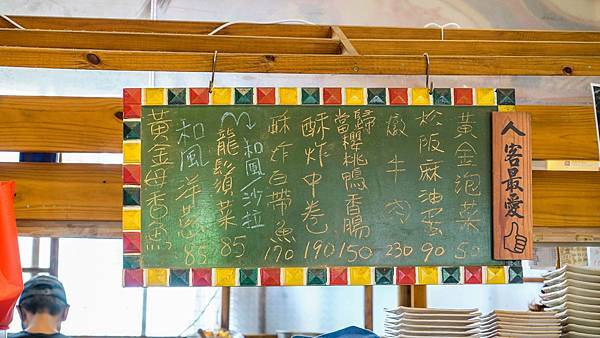 人客最愛
黃金泡菜 50
松阪麻油蛋 90
牛肉 230
歸當櫻桃鴨香腸 150
酥炸中卷 190
酥炸白帶魚 170
和風/沙拉
龍鬚菜 85
和風洋蔥 85
黃金母香魚